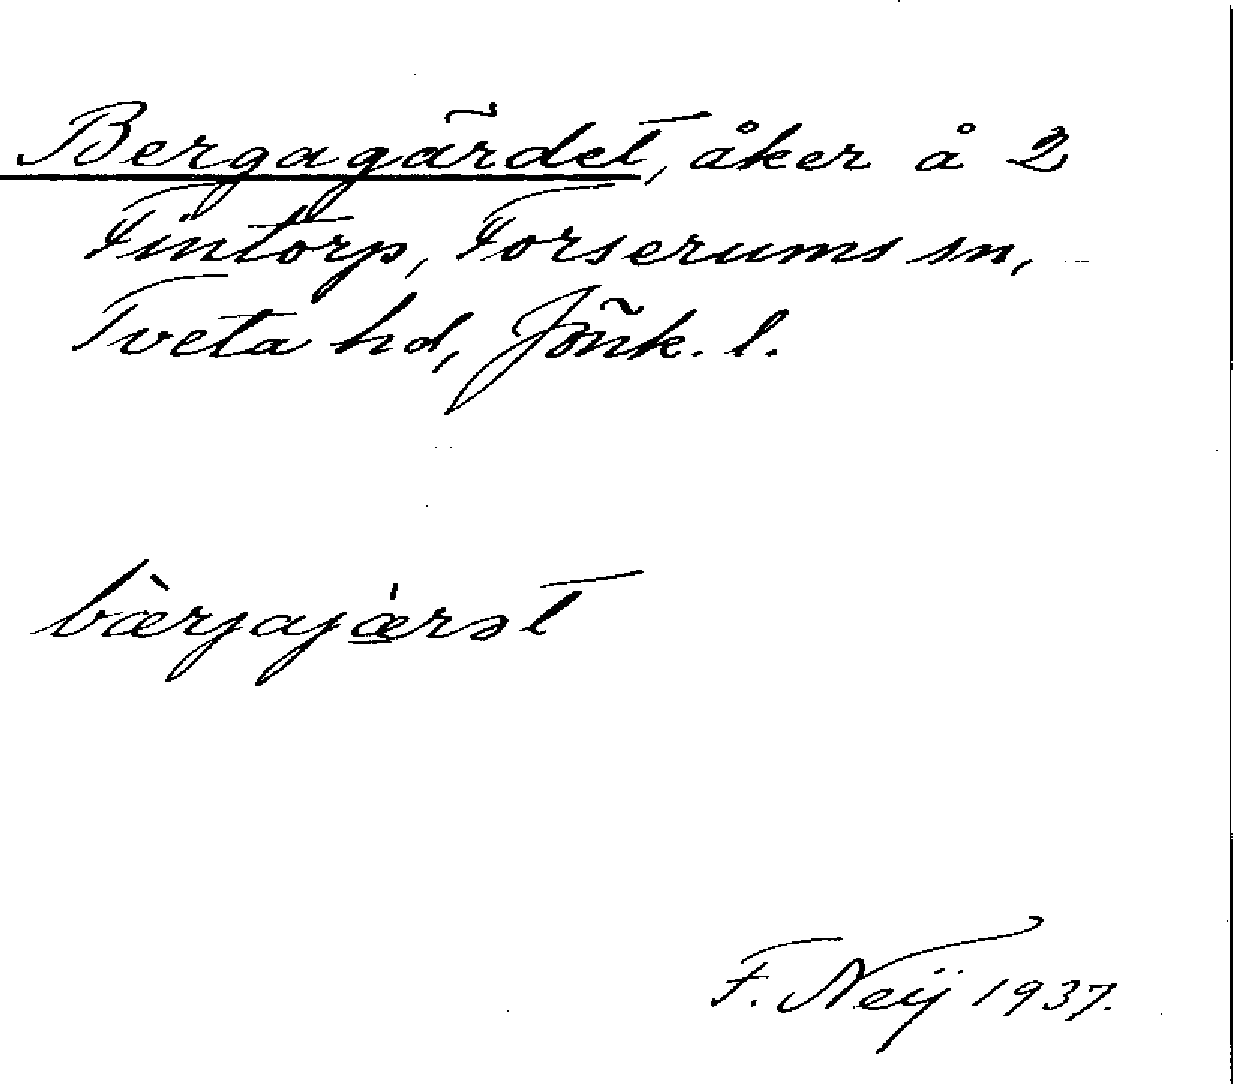 Bergagärdet, åker å 2
Fintorp, Forserums sn,
Tveta hd, Jönk. l.
bæ̀rjajǽ̲rət
F. Neij 1937.